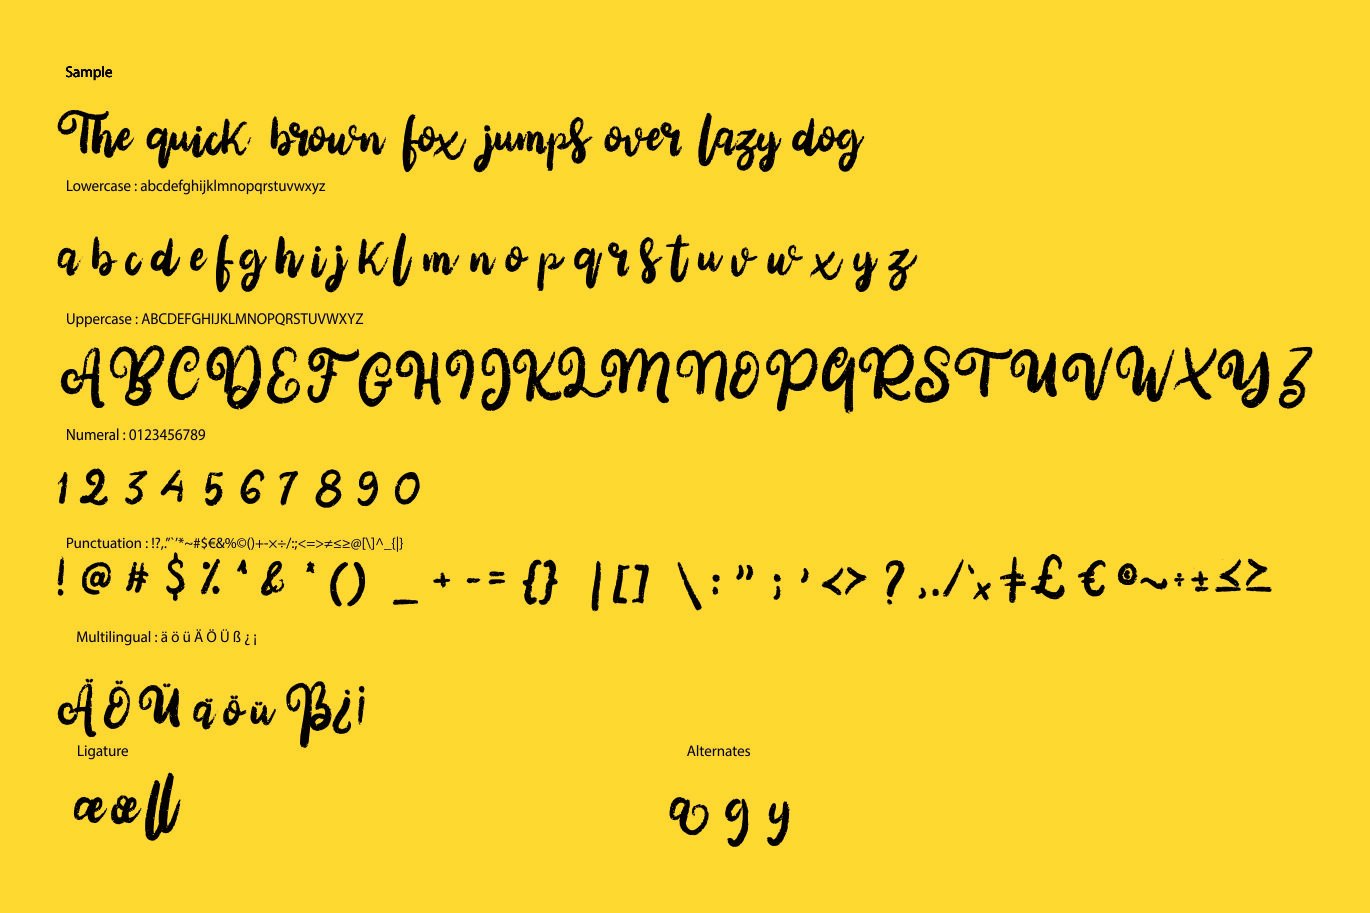 Sample
The quick brown fox jumps over lazy dog
Lowercase : abcdefghijklmnopqrstuvwxyz
a b c d e f g h i j k l m n o p q r s t u v w x y z
Uppercase : ABCDEFGHIJKLMNOPQRSTUVWXYZ
A B C D E F G H I J K L M N O P Q R S T U V W X Y Z
Numeral : 0123456789
1 2 3 4 5 6 7 8 9 0
Punctuation : !?,."`'*~#$€&%©()+-×÷/:;<=>≠≤≥@[\]^_{|}
! @ # $ % ^ & * ( ) _ + - = { } | [ ] \ : " ; ' < > ? , . / ` × ≠ £ € © ~ ÷ ± ≤ ≥
Multilingual : ä ö ü Ä Ö Ü ß ¿ ¡
Ä Ö Ü ä ö ü ß ¿ ¡
Ligature
Alternates
æ œ ll
a g y